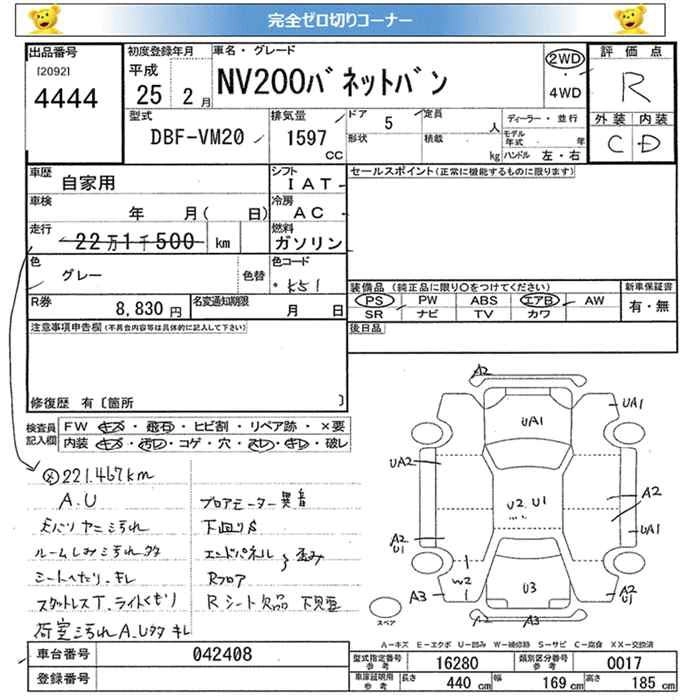 完全ゼロ切りコーナー
出品番号
[2092]
4444
初度登録年月
平成
25 2月
車名・グレード
NV200バネットバン
2WD
・
4WD
評価点
R
外装 内装
C D
型式
DBF-VM20
排気量
1597
CC
ドア
5
形状
定員
人
積載
kg
ディーラー・並行
モデル年式
ハンドル 左・右
車歴
自家用
シフト
IAT
車検
年 月( 日)
冷房
AC
走行
22万1千500 km
燃料
ガソリン
色
グレー
色替
色コード
K51
R券
8,830円
名変通知期限
月 日
セールスポイント(正常に機能するものに限ります)
装備品 (純正品に限り○をつけてください)
PS PW ABS エアB AW
SR ナビ TV カワ
新車保証書
有・無
後日品
注意事項申告欄(不具合内容等は具体的に記入して下さい)
修復歴 有〔箇所 〕
検査員記入欄
FW キズ・飛石・ヒビ割・リペア跡・×要
内装 キズ・汚レ・コゲ・穴・スレ・キレ・破レ
221.467km
A.U
ブロアモーター異音
天バリヤニ汚れ
下廻りS
ルームしみ汚れ多
エンドパネル
歪み
シートへたり、キレ
Rフロア
スタットレスT、ライトくもり
Rシート欠品
荷室汚れA.U多キレ
A2
UA1
UA1
UA2
A2
U2 U1
A2
U1
UA1
W2
U3
A3
A2
U1
A3
スペア
A－キズ E－エクボ U－凹み W－補修跡 S－サビ C－腐食 XX－交換済
車台番号
042408
登録番号
型式指定番号 参考
16280
類別区分番号 参考
0017
車庫証明用 参考
長さ 440 cm
幅 169 cm
高さ 185 cm